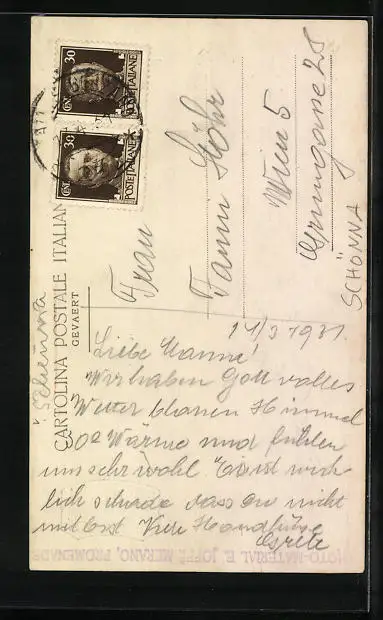 30
CENT
POSTE ITALIANE
30
CENT
POSTE ITALIANE
"Schenna
CARTOLINA POSTALE ITALIANA
GEVAERT
Frau
Fanni Löhr
Wien 5
Grüngasse 28
SCHÖNNA
14/3 1931.
Liebe Mamme!
Wir haben Gott volles
Wetter blauen Himmel
30° Wärme und fühlen
uns sehr wohl. Es ist wirk-
lich schade dass du nicht
mit bist. Viele Handküsse
Grete
FOTO-MATERIAL E. JOFFÈ MERANO, PROMENADE